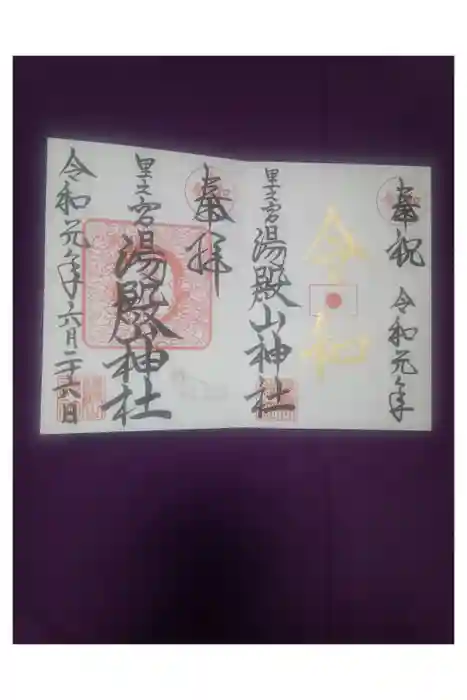 奉祝
令和元年
令和
里之宮
湯殿山神社
奉拝
里之宮
湯殿山神社
令和元年六月二十六日